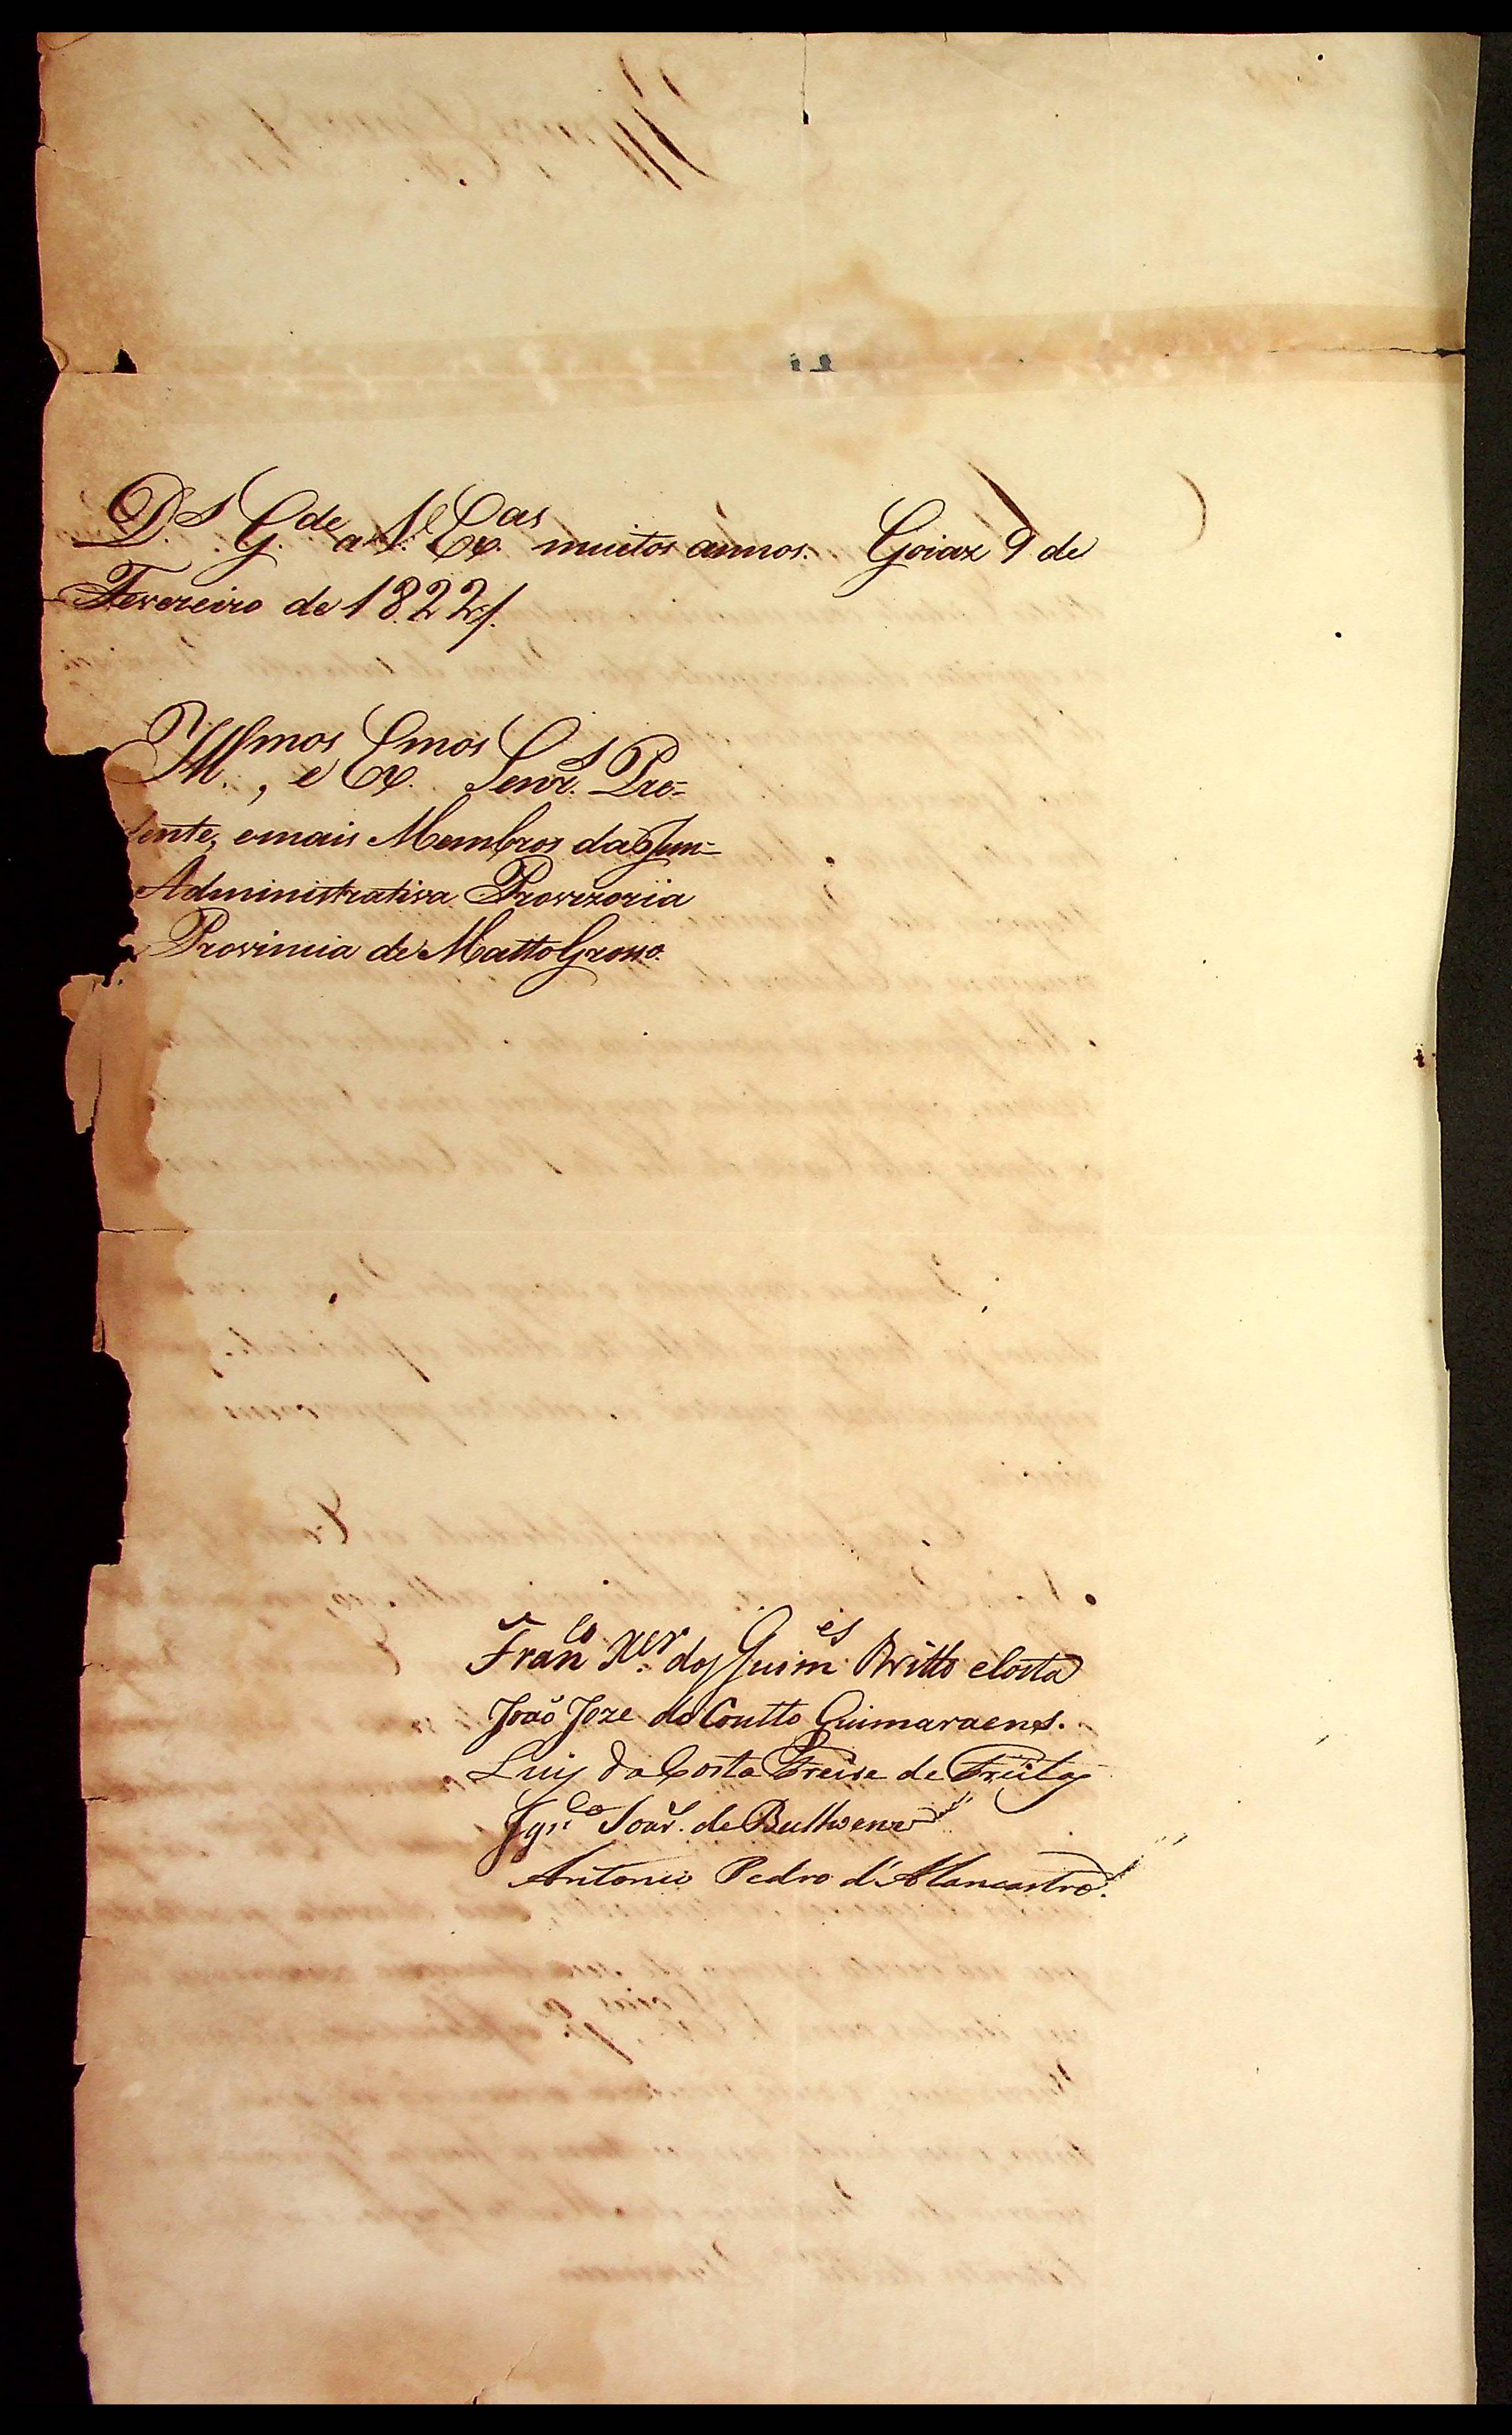 D.s G.de a V. Ex.as muitos annos. Goiaz 9 de
Fevereiro de 1822 //.
Ill.mos, e Ex.mos Senr.s Pre=
dente, e mais Membros da Jun=
Administrativa Provizoria
Provincia de Matto Grosso.
Fran.co X.er dos Guim.es Britto e Costa
João Joze do Coutto Guimaraens.
Luiz da Costa Freire de Freitas
Ign.co Soar. de Bulhoens
Antonio Pedro d'Alancastro.